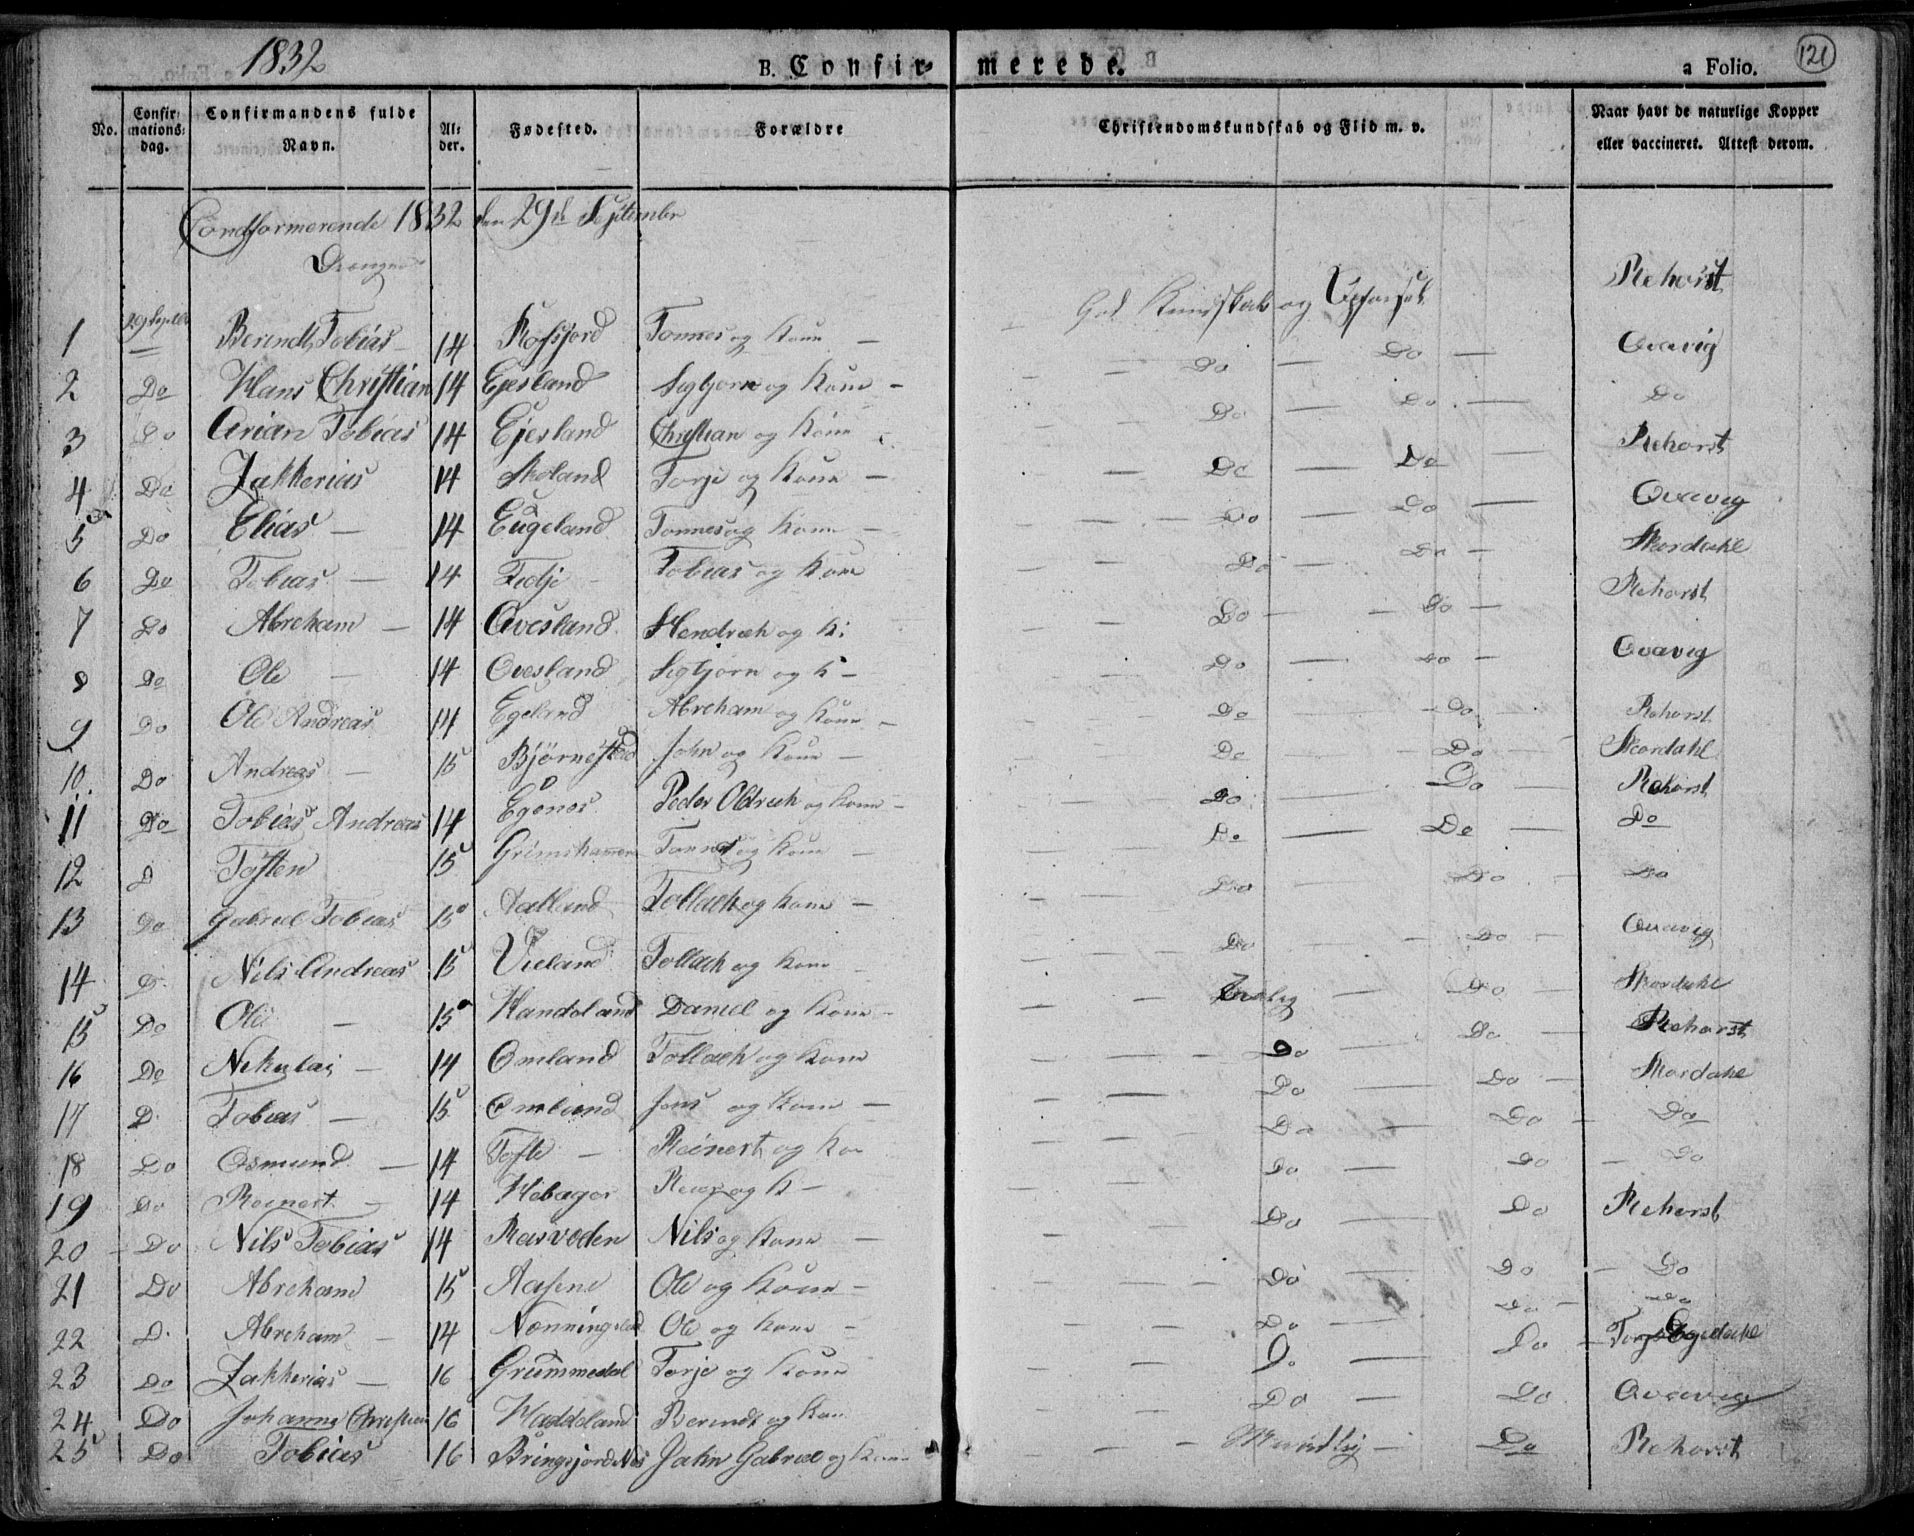 1832
B. Confirmerede.
a Folio.
121
No.
Confirmationsdag.
Confirmandens fulde Navn.
Alder.
Fødested.
Forældre
Christendomskundskab og Flid m. v.
Naar havt de naturlige Kopper eller vaccineret. Attest derom.
Condformerende 1832 den 29de September
Drenge
1 29 Septbr Berendt Tobias 14 Rosfjord Tønnes og Kone — God Kundskab og Rehorst
2 Do Hans Christian 14 Ejesland Segbjørn og Kone — Do — Do — Qvavig
3 Do Arian Tobias 14 Ejesland Christian og Kone Do — Do — Do
4 Do Zakkerias 14 Skoland Torje og Kone — Do — Do — Rehorst
5 Do Elias — 14 Eugeland Tønnes og Kone — Do — Do — Qvavig
6 Do Tobias — 14 Fedje Tobias og Kone Do Do — Skordahl
7 Do Abreham — 14 Ovesland Hendrech og K: Do — Do — Rehorst
8 Do Ole — 14 Ovesland Segbjørn og K — Do — Do — Qvavig
9 Do Ole Andreas 14 Egeland Abreham og Kone — Do — Do Rehorst
10. Do Andreas — 15 Bjørnestad John og Kone — Do — Do Skordahl
11 Do Tobias Andreas 14 Egenes Peder Oldrich og Kone — Do — Do Rehorst
12 D Tosten 15 Grimshammen Tønnes og Kone — Do — Do — Do
13 Do Gabriel Tobias 15 Aatland Tollach og Kone — Do — Do — Do
14 D. Nils Andreas 15 Vieland Tollach og Kone Do — Do — Qvavig
15 Do Ole — 15 Handeland Daniel og Kone — — Do — Skordahl
16 Do Nikolai — 14 Omland Tollach og Kone Do — Do — Rehorst
17 D. Tobias — 15 Omland Jens og Kone — Do Do — Skordahl
18 Do Osmund — 14 Tofte — Reinert og Kon Do Do — Do
19 Do Reinert — 14 Hebager og K — Do — Do — Do
20 Do Nils Tobias 14 Rasvoden Nils og Kone — Do — Do Rehorst
21 Do Abreham 15 Aasene Ole og Kone — Do — Do — Do
22 D. Abreham — 14 Nønningsland Ole og Kone — Do Do — Do
23 Do Zakkerias — 16 Grummedal Torje og Kone Do — Do — Egedahl
24 Do Johannes Christian 16 Haddeland Berendt og Kon Do — Do Qvavig
25 Do Tobias 16 Bringsjord Næs Jahn Gabriel og Kone Maadelig — Do Rehorst